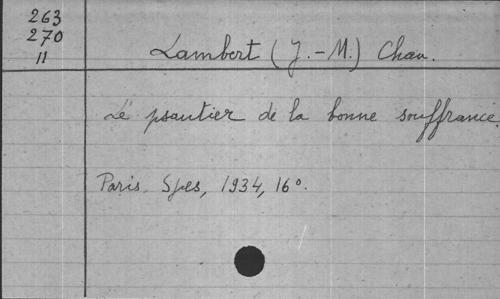 263
270
11
Lambert (J.-M.) Chan.
Le psautier de la bonne souffrance
Paris, Spes, 1934, 16°.